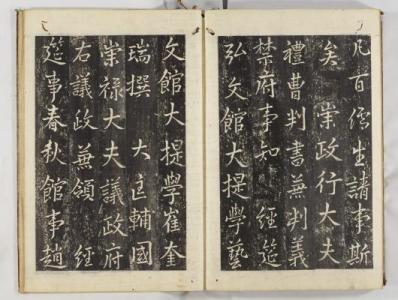 凡百儒生請事斯
矣 崇政行大夫
禮曹判書兼判義
禁府事知 經筵
弘文館大提學藝
文館大提學崔奎
瑞撰 大匡輔國
崇祿大夫議政府
右議政兼領 經
筵事春秋館事趙